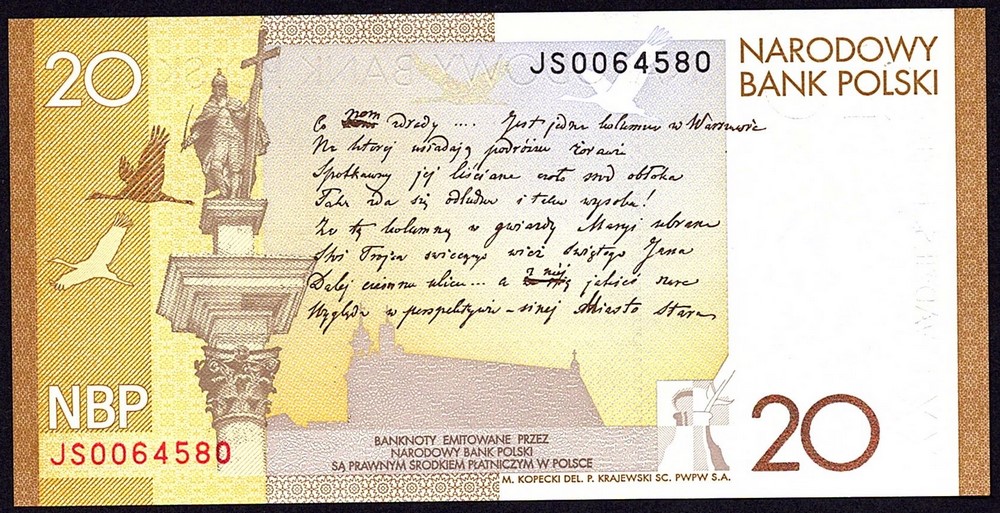 20
JS0064580
NARODOWY
BANK POLSKI
Co nam zdrady .... Jest jedna kolumna w Warszawie
Na ktorej usiadają podróżne żorawie
Spotkawszy jej liściane czoło nad obłoka
Taka zda się odludna i taka wysoka!
Za tą kolumną w gwiazdy Maryi ubrana
Stoi Trojca swiecących wież świętego Jana
Dalej ciemna ulica... a z niej jakieś szare
Wygląda w perspektywie – sinej Miasto Stare
NBP
JS0064580
BANKNOTY EMITOWANE PRZEZ
NARODOWY BANK POLSKI
SĄ PRAWNYM ŚRODKIEM PŁATNICZYM W POLSCE
20
M. KOPECKI DEL. P. KRAJEWSKI SC. PWPW S.A.